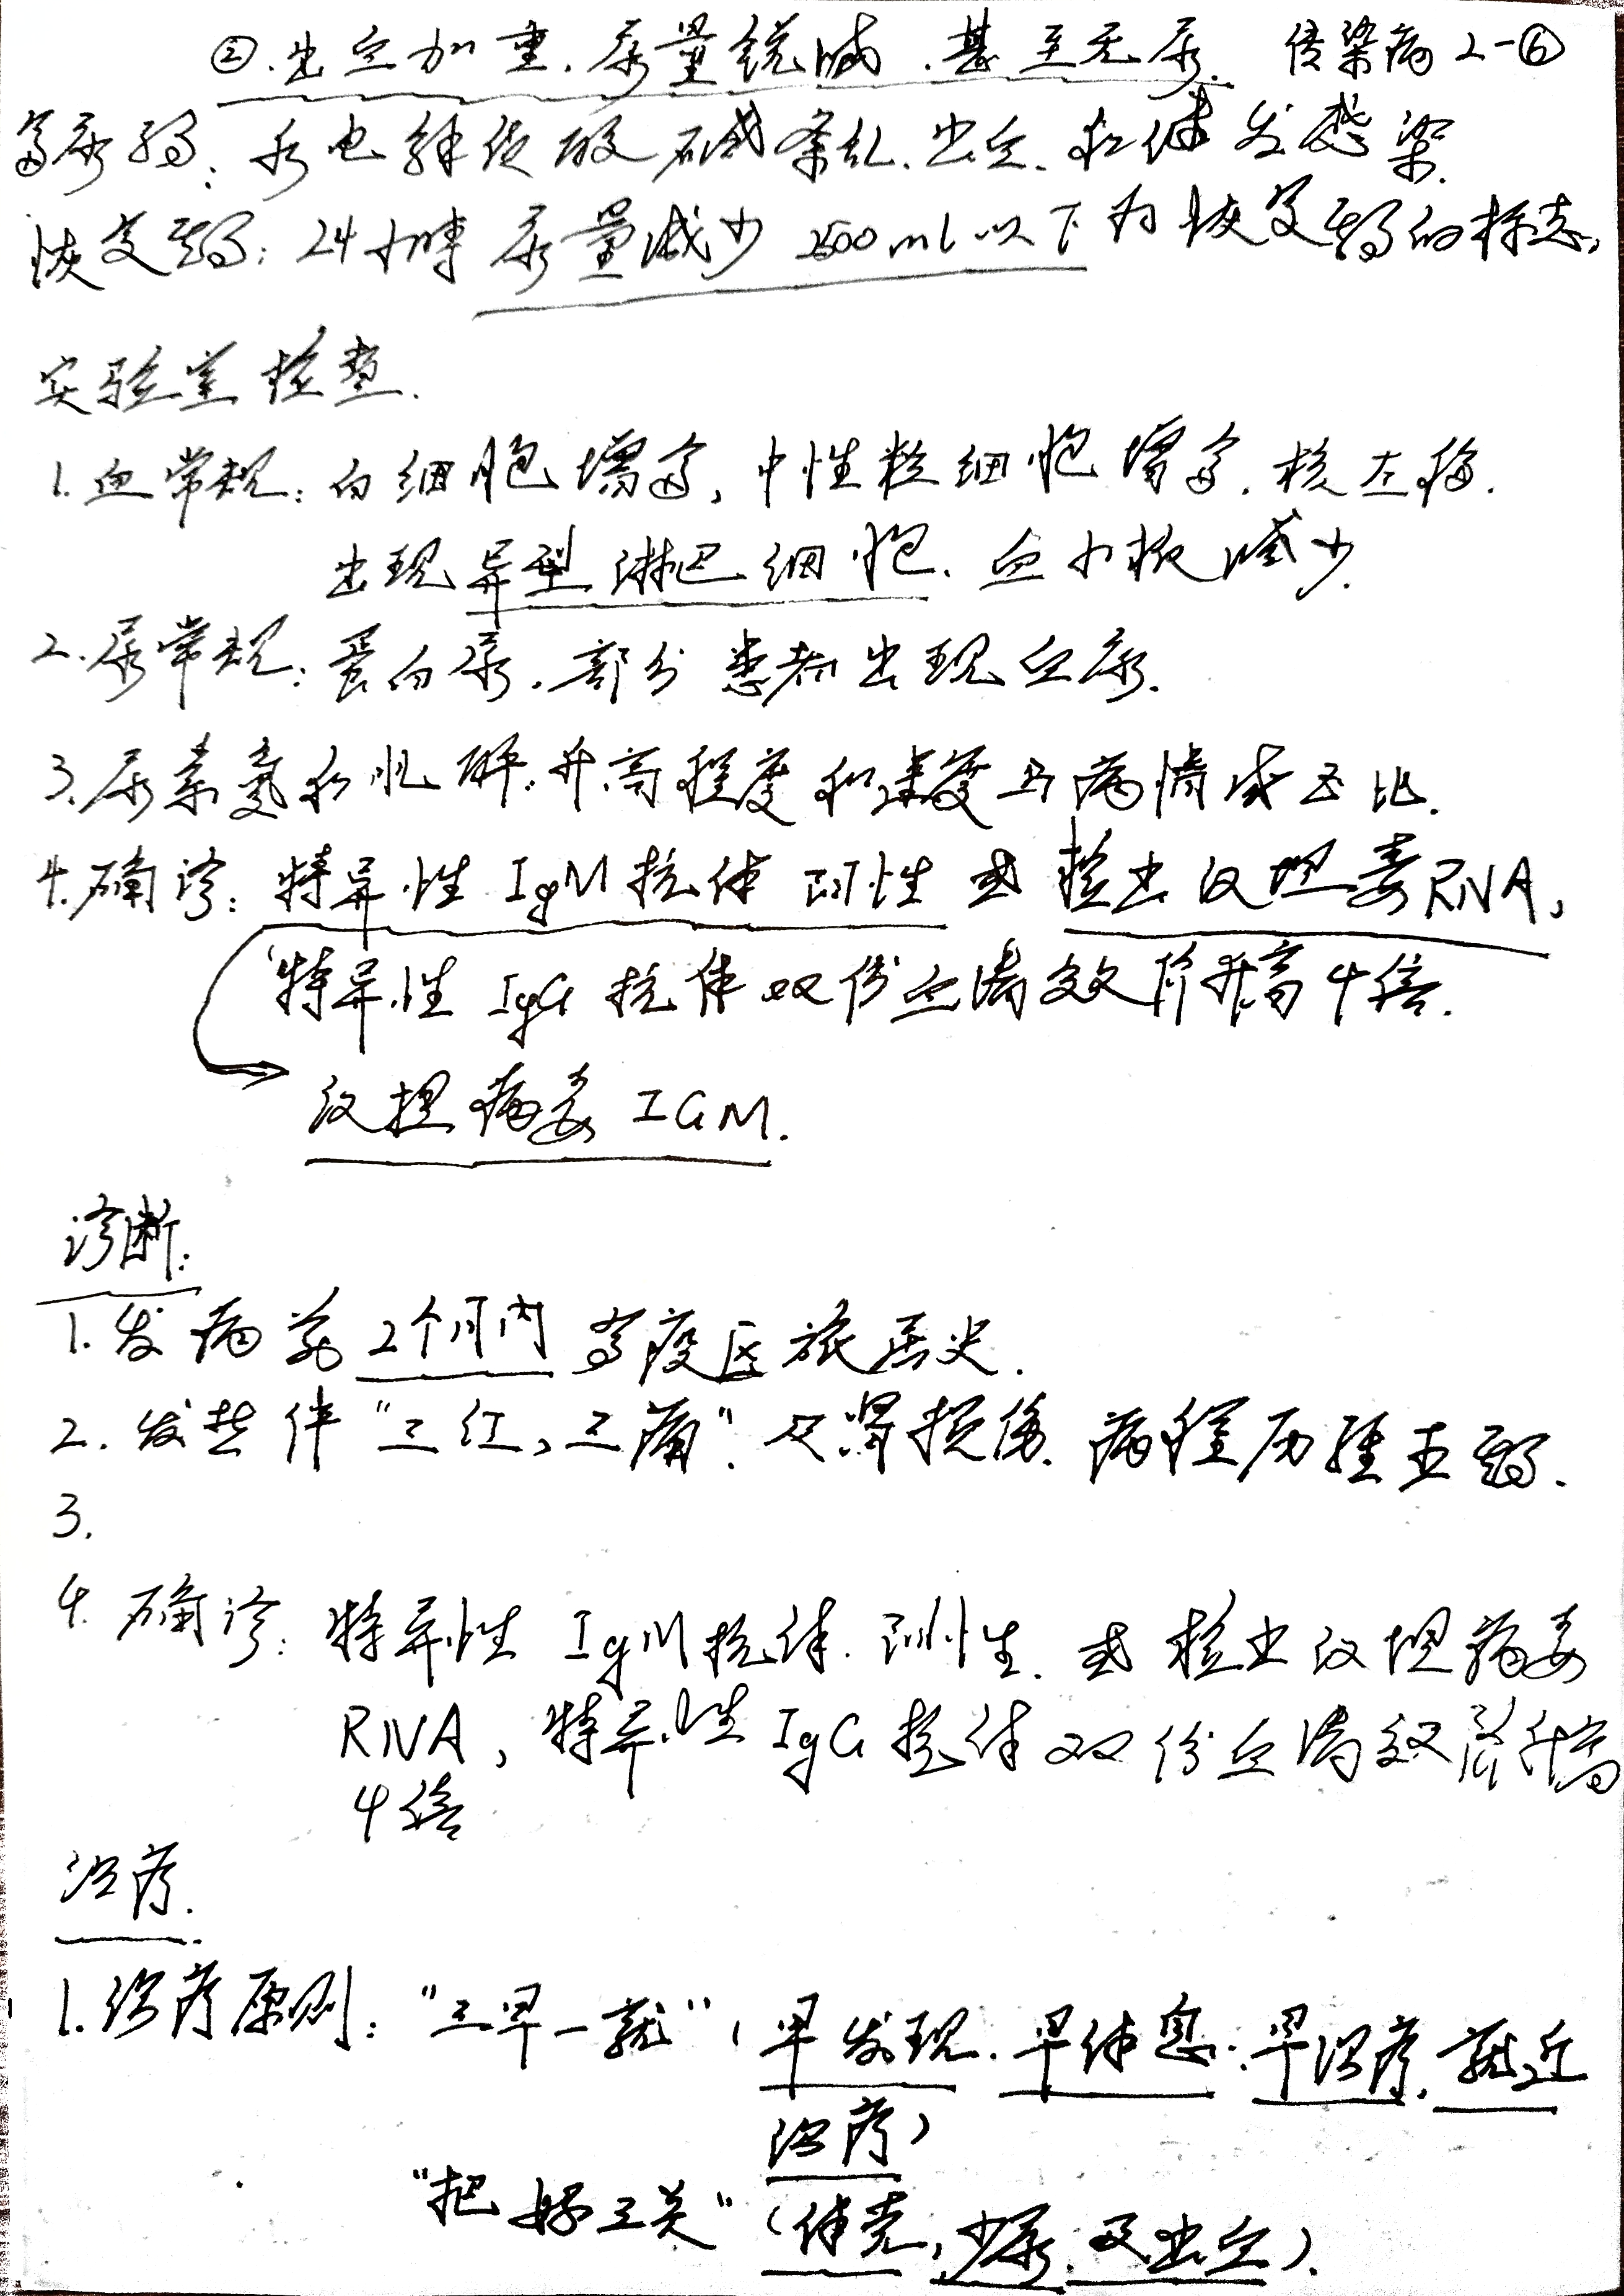 ②.出血加重.尿量锐减.甚至无尿. 传染病2-⑥
多尿期:水电解质酸碱紊乱.出血.和继发感染.
恢复期:24小时尿量减少2500ml以下为恢复期的标志,
实验室检查.
1.血常规:白细胞增多,中性粒细胞增多.核左移.
出现异型淋巴细胞.血小板减少.
2.尿常规:蛋白尿.部分患者出现血尿.
3.尿素氮和肌酐:升高程度和速度与病情成正比.
4.确诊:特异性IgM抗体阳性或检出汉坦毒RNA,
特异性IgG抗体双份血清效价升高4倍.
汉坦病毒IGM.
诊断:
1.发病前2个月内有疫区旅居史.
2.发热伴“三红,三痛”.及肾损伤.病程历经五期.
3.
4.确诊:特异性IgM抗体.阳性.或检出汉坦病毒
RNA,特异性IgG抗体双份血清效价升高
4倍
治疗.
1.治疗原则:“三早一就”(早发现.早休息.早治疗,就近
治疗)
“把好三关”(休克,少尿.及出血).